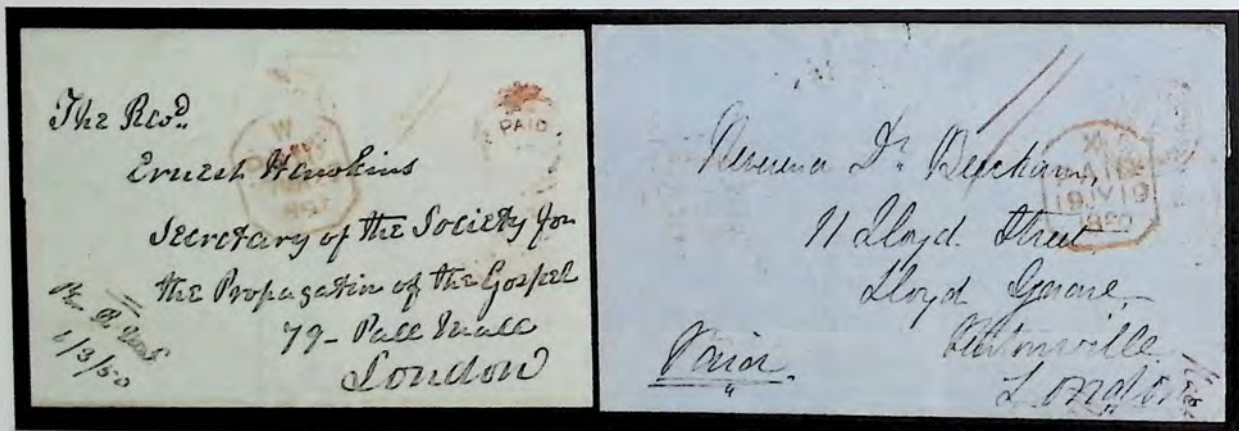 The Revd.
Ernest Hawkins
Secretary of the Society for
the Propagation of the Gospel
79 - Pall Mall
London
1/3/50
W
PAID
PAID
Reverend Dr. Beecham,
11 Lloyd Street
Lloyd Square
Pentonville
London
Paid
PAID
19 JY 19
1850